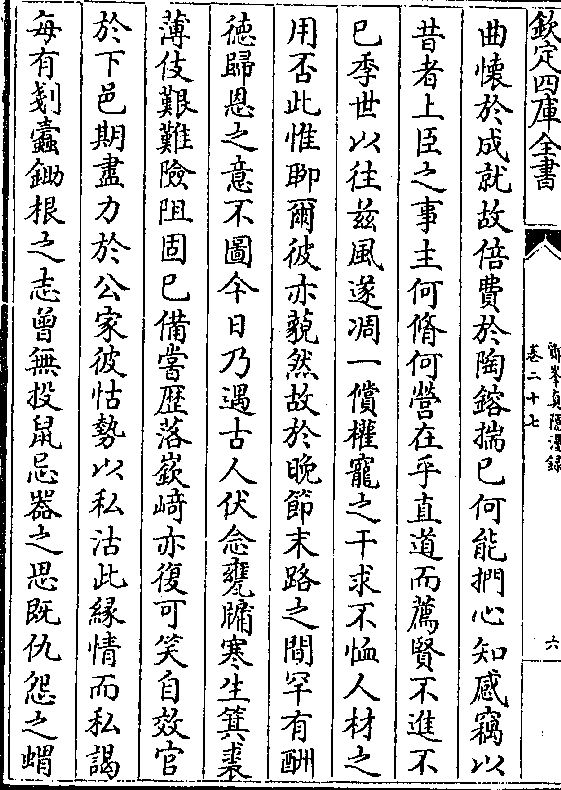 欽定四庫全書
鄮峯真隱漫錄
卷二十七
六
曲懷於成就故倍費於陶鎔揣己何能捫心知感竊以
昔者上臣之事主何脩何營在乎直道而薦賢不進不
已季世以往茲風遂凋一償權寵之干求不恤人材之
用否此惟聊爾彼亦藐然故於晚節末路之間罕有酬
徳歸恩之意不圖今日乃遇古人伏念甕牖寒生箕裘
薄伎艱難險阻固已備嘗歴落嶔﨑亦復可笑自效官
於下邑期盡力於公家彼怙勢以私沽此緣情而私謁
每有剗蠹鋤根之志曾無投鼠忌器之思既仇怨之蝟